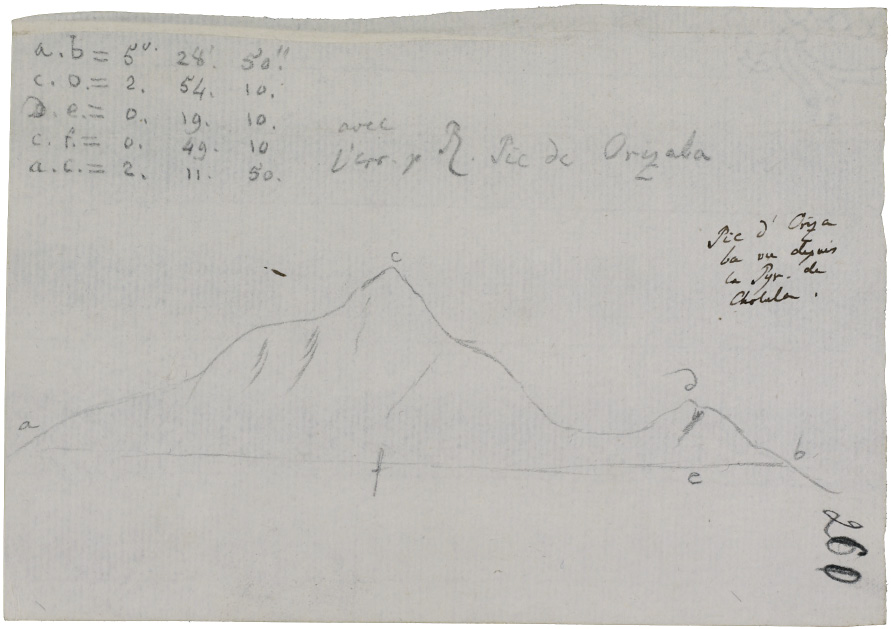 a.b = 5°. 28'. 50''.
c. D. = 2. 54. 10.
D. e. = 0. 19. 10.
c. f. = 0. 49. 10
a. c. = 2. 11. 50.
avec
l'err. p R. Pic de Oryzaba
Pic d' Oriza
ba vu depuis
la Pyr. de
Cholula.
c
d
a
b
f
e
260